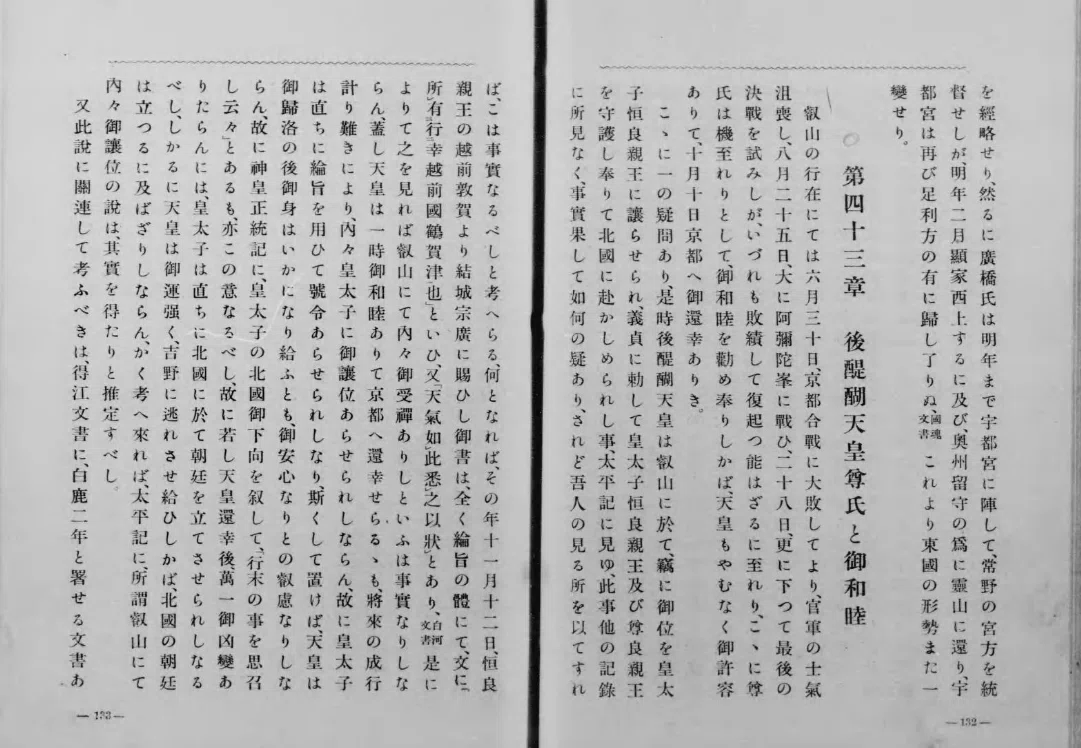 を經略せり、然るに廣橋氏は明年まで宇都宮に陣して、常野の宮方を統
督せしが、明年二月顯家西上するに及び、奧州留守の爲に靈山に還り、宇
都宮は再び足利方の有に歸し了りぬ、國魂文書これより東國の形勢また一
變せり。
第四十三章　後醍醐天皇尊氏と御和睦
叡山の行在にては六月三十日、京都合戰に大敗してより、官軍の士氣
沮喪し、八月二十五日、大に阿彌陀峯に戰ひ、二十八日、更に下つて最後の
決戰を試みしが、いづれも敗績して復起つ能はざるに至れり、こゝに尊
氏は機至れりとして、御和睦を勸め奉りしかば、天皇もやむなく御許容
ありて、十月十日京都へ御還幸ありき。
こゝに一の疑問あり、是時後醍醐天皇は叡山に於て、竊に御位を皇太
子恒良親王に讓らせられ、義貞に勅して皇太子恒良親王及び尊良親王
を守護し奉りて北國に赴かしめられし事、太平記に見ゆ此事他の記錄
に所見なく、事實果して如何の疑あり、されど吾人の見る所を以てすれ
―132―
ば、こは事實なるべしと考へらる、何となれば、その年十一月十二日、恒良
親王の越前敦賀より結城宗廣に賜ひし御書は、全く綸旨の體にて、文に
所有行幸越前國鶴賀津也」といひ、又「天氣如此悉之以狀」とあり、白河文書是に
よりて之を見れば叡山にて內々御受禪ありしといふは事實なりしな
らん、蓋し天皇は一時御和睦ありて京都へ還幸せらるゝも、將來の成行
計り難きにより、內々皇太子に御讓位あらせられしならん、故に皇太子
は直ちに綸旨を用ひて號令あらせられしなり、斯くして置けば、天皇は
御歸洛の後御身はいかになり給ふとも、御安心なりとの叡慮なりしな
らん、故に神皇正統記に、皇太子の北國御下向を叙して、「行末の事を思召
し云々」とあるも、亦この意なるべし、故に若し天皇還幸後、萬一御凶變あ
りたらんには、皇太子は直ちに北國に於て朝廷を立てさせられしなる
べし、しかるに天皇は御運强く、吉野に逃れさせ給ひしかば、北國の朝廷
は立つるに及ばざりしならん、かく考へ來れば、太平記に、所謂叡山にて
內々御讓位の說は、其實を得たりと推定すべし。
又此說に關連して考ふべきは、得江文書に、白鹿二年と署せる文書あ
―133―